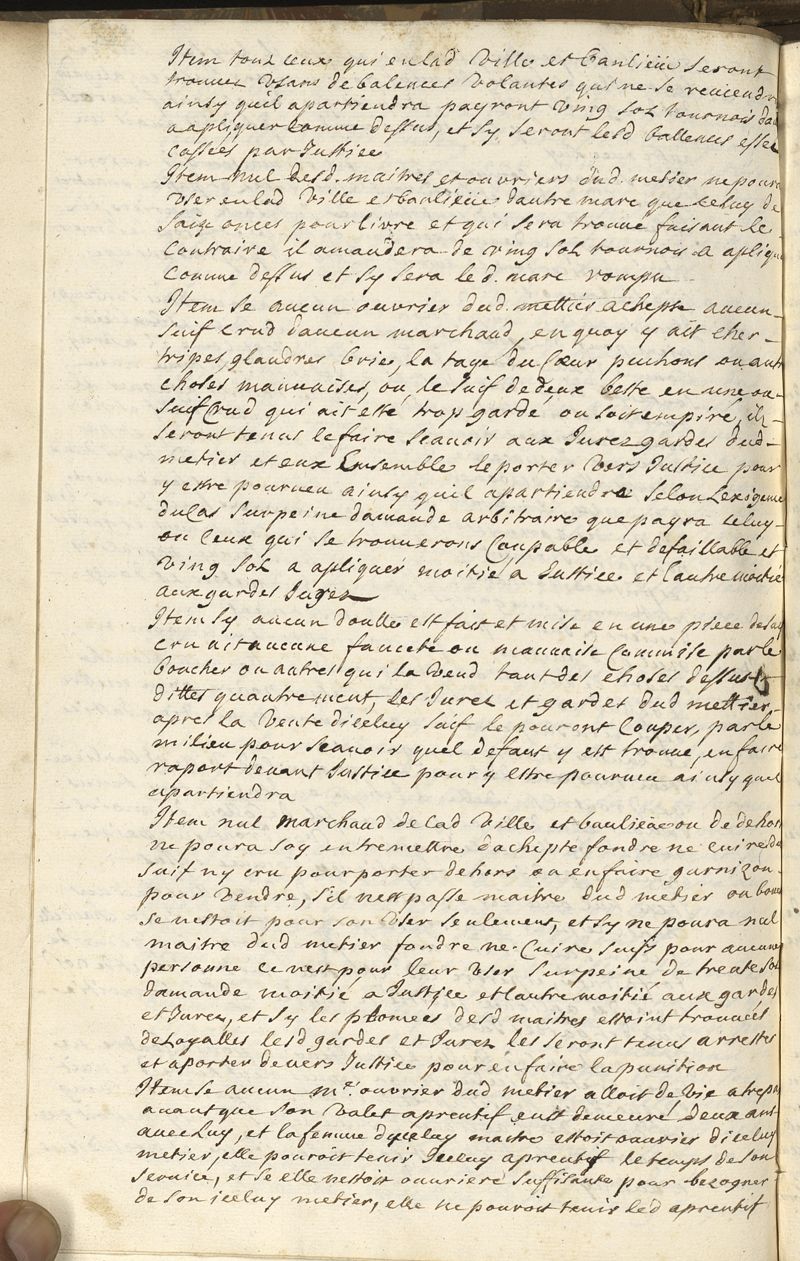 Item tous ceux qui en lad ville et banlieüe seront
trouvez usans de balences volantes qui ne se
ainsy quil apartiendra payront ving sol tournois
a apliquer comme dessus, et sy seront lesd ballences
cassées par Justice
Item nul desd. maitres et ouvriers dud. metier ne poura
user en lad ville et banlieüe dautre marc que celuy de
saize onces pour livre et qui sera trouvé faisant le
contraire il amandera de ving sol tournois a apliquer
comme dessus et sy sera led. marc rompu
Item se aucun ouvrier dud. mettier achepte aucun
suif crud daucun marchand, en quoy y ait cher
tripes, glandres brie, la taye du Coeur puchons ou autr
choses mauvaises, ou, le suif de deux beste en une ou
suif Crud qui ait esté trop garde ou soit empiré, ilz
seront tenus le faire scavoir aux Jurez gardes dud
metier et eux Ensemble le porter vers Justice pour
y estre pourveu ainsy quil apartiendra selon Lexigence
du Cas sur peine damande arbitraire que payra celuy
ou ceux qui se trouverons Coupable et defaillable et
ving sol a apliquer moitié a Justice et lautre moitié
aux gardes Jurez
Item sy aucun doulle est fait et mise en une piece de
cru ait aucune fauceté ou mauvaise Commise par le
boucher ou autres qui la vend tant des choses dessus
dittes quautrement, les Jurez et gardes dud mettier,
apres la vente diceluy suif le pouront Couper, par le
milieu pour scavoir quel defaut y est trouvé, en faire
raport devant Justice pour y estre pourveu ainsy quil
apartiendra
Item nul marchand de lad ville et banlieüe ou de dehors
ne poura soy entremettre dachepte fondre ne cuire de
suif ny cru pour porter dehors ou en faire garnizon
pour vendre, s'il nest passe maitre dud metier ou
se nestoit pour son user seulement, et sy ne poura nul
maitre dud metier fondre ne Cuire suifs pour aucune
personne ce nest pour leur user sur peine de trente sol
damande moitié a Justice et lautre moitié aux gardes
et Jurez, et sy les plomées desd maitres estoint trouvées
deloyalles lesd gardes et Jurez les seront tenus arrester
et aporter devers Justice pour en faire la punition
Item se aucun mre. ouvrier dud metier alloit de vie a
avant que son valet aprentif eust demeuré deux ans
avec luy, et la femme diceluy maitre estoit ouvrier diceluy
metier, elle pouroit tenir Iceluy aprentif le temps de son
service, et se elle nestoit ouvriere suffisante pour bezogner
de son iceluy metier, elle ne pouroit tenir led aprentif